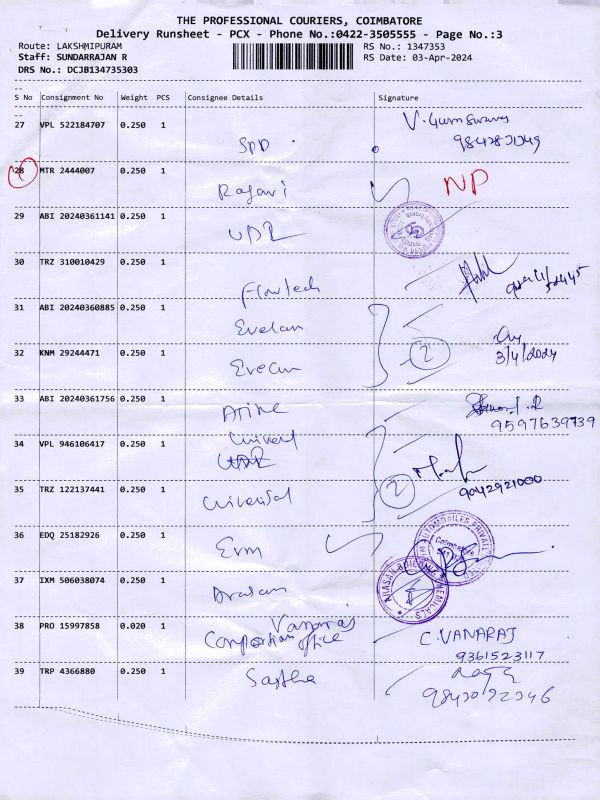 THE PROFESSIONAL COURIERS, COIMBATORE
Delivery Runsheet - PCX - Phone No.:0422-3505555 - Page No.:3
Route: LAKSHMIPURAM RS No.: 1347353
Staff: SUNDARRAJAN R RS Date: 03-Apr-2024
DRS No.: DCJB134735303
S No Consignment No Weight PCS Consignee Details Signature
27 VPL 522184707 0.250 1 SPD
28 MTR 2444007 0.250 1 NP
29 ABI 20240361141 0.250 1
30 TRZ 310010429 0.250 1 Flowtech
31 ABI 20240360885 0.250 1
2
32 KNM 29244471 0.250 1 3/4/2024
33 ABI 20240361756 0.250 1
9597639739
34 VPL 946106417 0.250 1
35 TRZ 122137441 0.250 1 Universal 2 9042921000
36 EDQ 25182926 0.250 1
37 IXM 506038074 0.250 1
38 PRO 15997858 0.020 1 Vanaraj
office C.VANARAJ
9361523117
39 TRP 4366880 0.250 1 Sastha